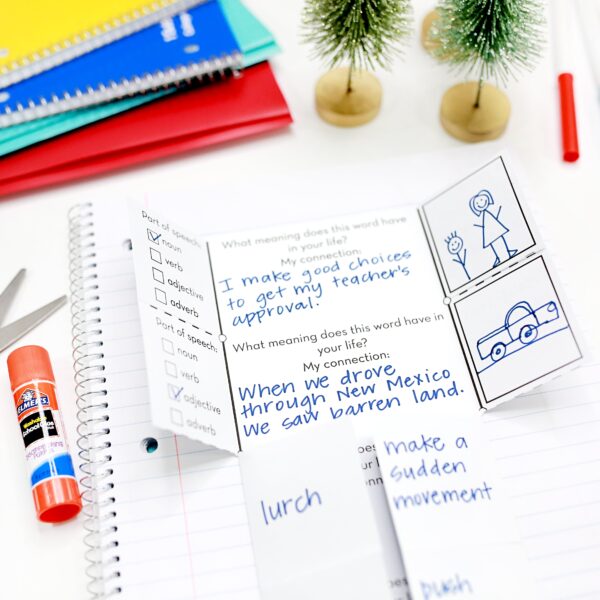 Part of speech:
noun
verb
adjective
adverb
What meaning does this word have
in your life?
My connection:
I make good choices
to get my teacher's
approval.
Part of speech:
noun
verb
adjective
adverb
What meaning does this word have in
your life?
My connection:
When we drove
through New Mexico
we saw barren land.
lurch
make a
sudden
movement
push
ELMER'S
Washable
School Glue